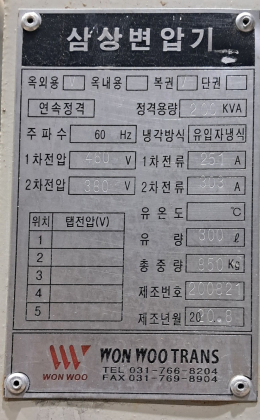 삼상변압기
옥외용 옥내용 복권 단권
연속정격 정격용량 200 KVA
주파수 60 Hz 냉각방식 유입자냉식
1차전압 460 V 1차전류 251 A
2차전압 380 V 2차전류 A
유온도 ℃
위치 탭전압(V)
유량 300 ℓ
1
2
총중량 950 Kg
3
4
제조번호 200821
5
제조년월 20 20.8
WON WOO
WON WOO TRANS
TEL 031-766-8204
FAX 031-769-8904